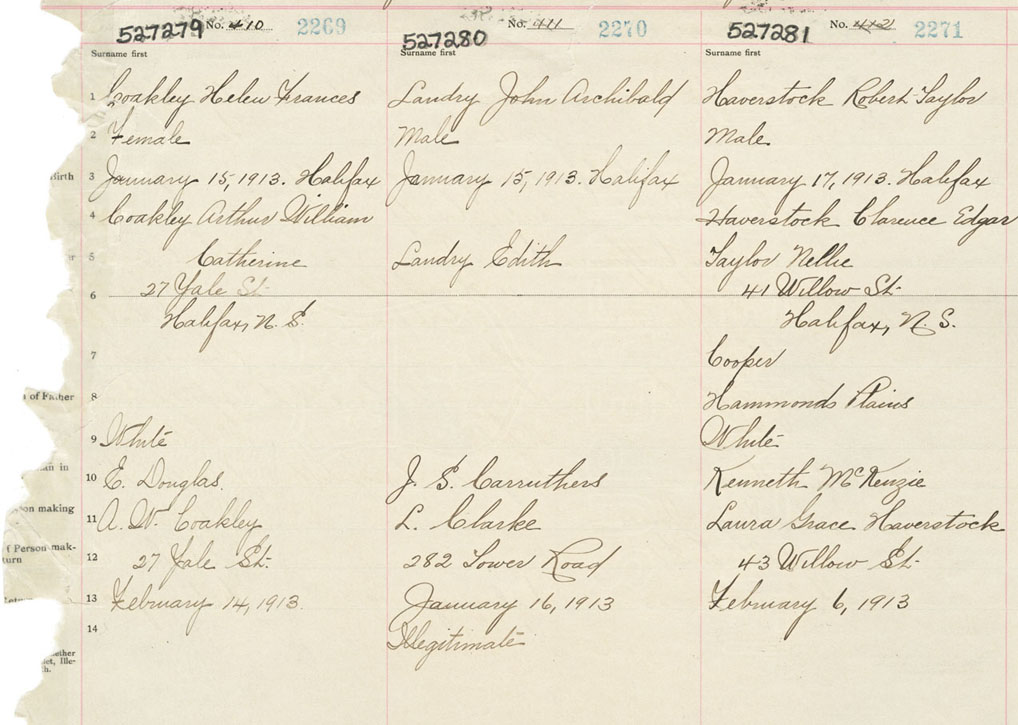 527279 No. 410 2269
Surname first
1 Coakley Helen Frances
2 Female
Birth 3 January 15, 1913. Halifax
4 Coakley Arthur William
5 Catherine
27 Yale St.
6
Halifax, N. S.
7
of Father 8
9 White
10 E. Douglas.
on making 11 A. W. Coakley
f Person mak-
turn 12 27 Yale St.
13 February 14, 1913.
14
527280 No. 411 2270
Surname first
Landry John Archibald
Male
January 15, 1913. Halifax
Landry Edith
J. S. Carruthers
L. Clarke
282 Tower Road
January 16, 1913
Illegitimate
527281 No. 412 2271
Surname first
Haverstock Robert Taylor
Male
January 17, 1913. Halifax
Haverstock Clarence Edgar
Taylor Nellie
41 Willow St.
Halifax, N. S.
Cooper
Hammonds Plains
White
Kenneth McKenzie
Laura Grace Haverstock
43 Willow St.
February 6, 1913